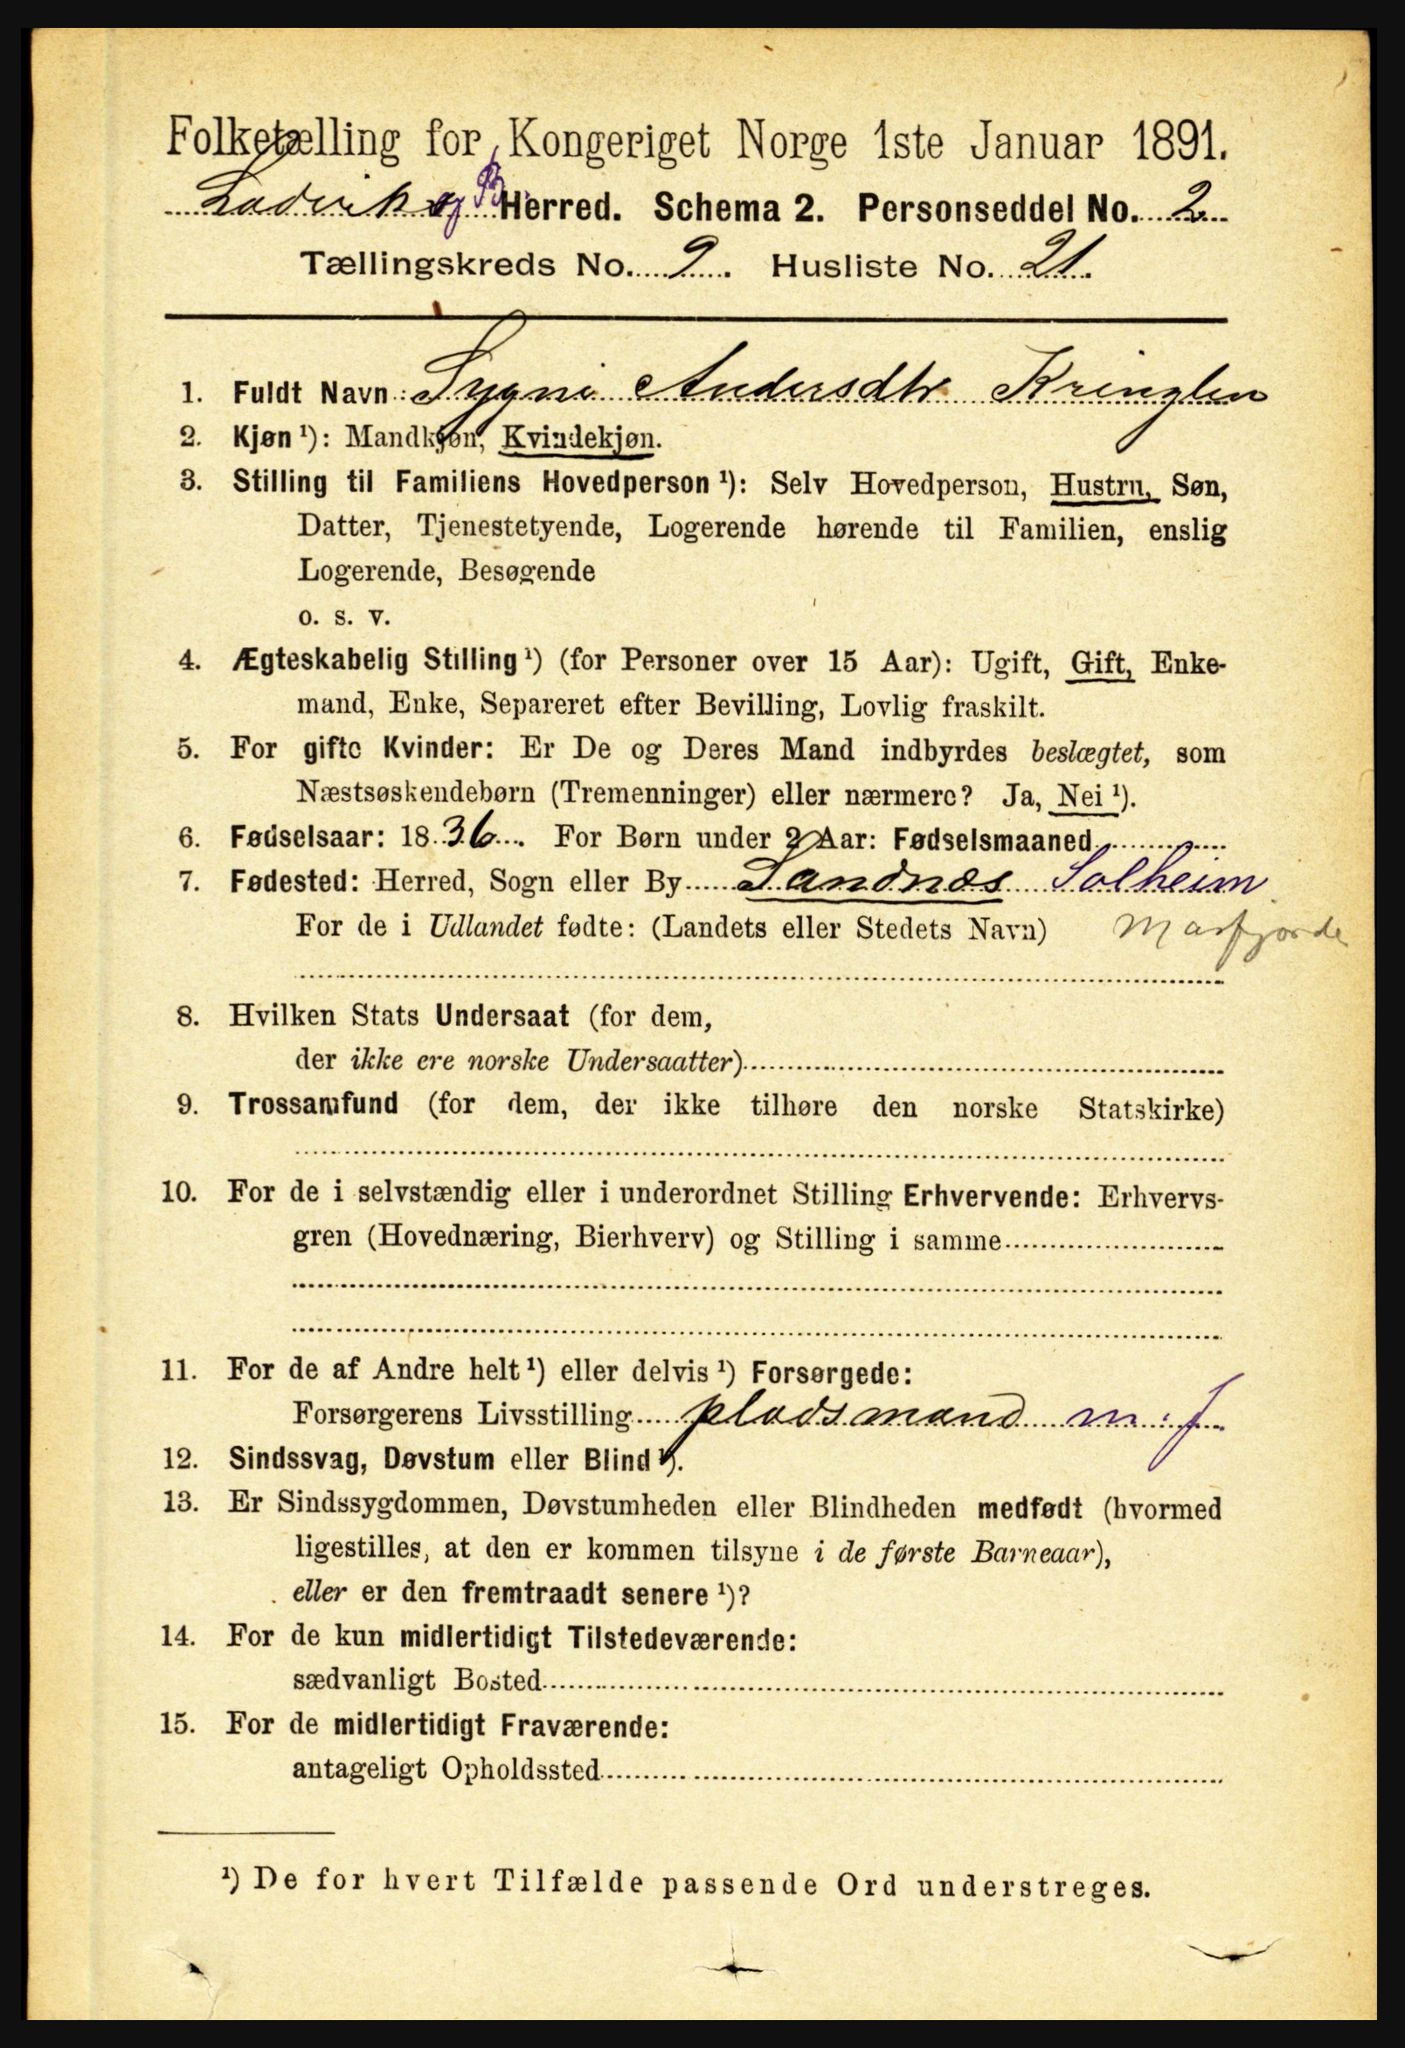 Folketælling for Kongeriget Norge 1ste Januar 1891.
Ladvik og B Herred. Schema 2. Personseddel No. 2
Tællingskreds No. 9. Husliste No. 21.
1. Fuldt Navn: Sygni Andersdtr Kringlen
2. Kjøn¹): Mandkjøn, Kvindekjøn.
3. Stilling til Familiens Hovedperson¹): Selv Hovedperson, Hustru, Søn,
Datter, Tjenestetyende, Logerende hørende til Familien, enslig
Logerende, Besøgende
o. s. v.
4. Ægteskabelig Stilling¹) (for Personer over 15 Aar): Ugift, Gift, Enke-
mand, Enke, Separeret efter Bevilling, Lovlig fraskilt.
5. For gifte Kvinder: Er De og Deres Mand indbyrdes beslægtet, som
Næstsøskendebørn (Tremenninger) eller nærmere? Ja, Nei¹).
6. Fødselsaar: 1836. For Børn under 2 Aar: Fødselsmaaned
7. Fødested: Herred, Sogn eller By Sandnæs Solheim
For de i Udlandet fødte: (Landets eller Stedets Navn) Masfjorde
8. Hvilken Stats Undersaat (for dem,
der ikke ere norske Undersaatter)
9. Trossamfund (for dem, der ikke tilhøre den norske Statskirke)
10. For de i selvstændig eller i underordnet Stilling Erhvervende: Erhvervs-
gren (Hovednæring, Bierhverv) og Stilling i samme
11. For de af Andre helt¹) eller delvis¹) Forsørgede:
Forsørgerens Livsstilling pladsmand m. j
12. Sindssvag, Døvstum eller Blind¹).
13. Er Sindssygdommen, Døvstumheden eller Blindheden medfødt (hvormed
ligestilles, at den er kommen tilsyne i de første Barneaar),
eller er den fremtraadt senere¹)?
14. For de kun midlertidigt Tilstedeværende:
sædvanligt Bosted
15. For de midlertidigt Fraværende:
antageligt Opholdssted
¹) De for hvert Tilfælde passende Ord understreges.